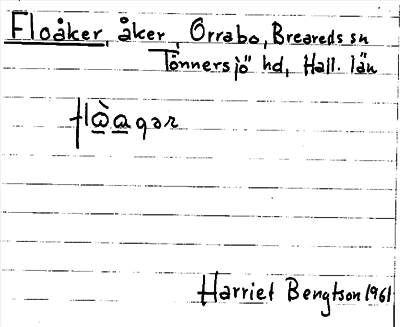 Floåker, åker, Orrabo, Breareds sn
Tönnersjö hd, Hall. län
flὼagər
Harriet Bengtson 1961